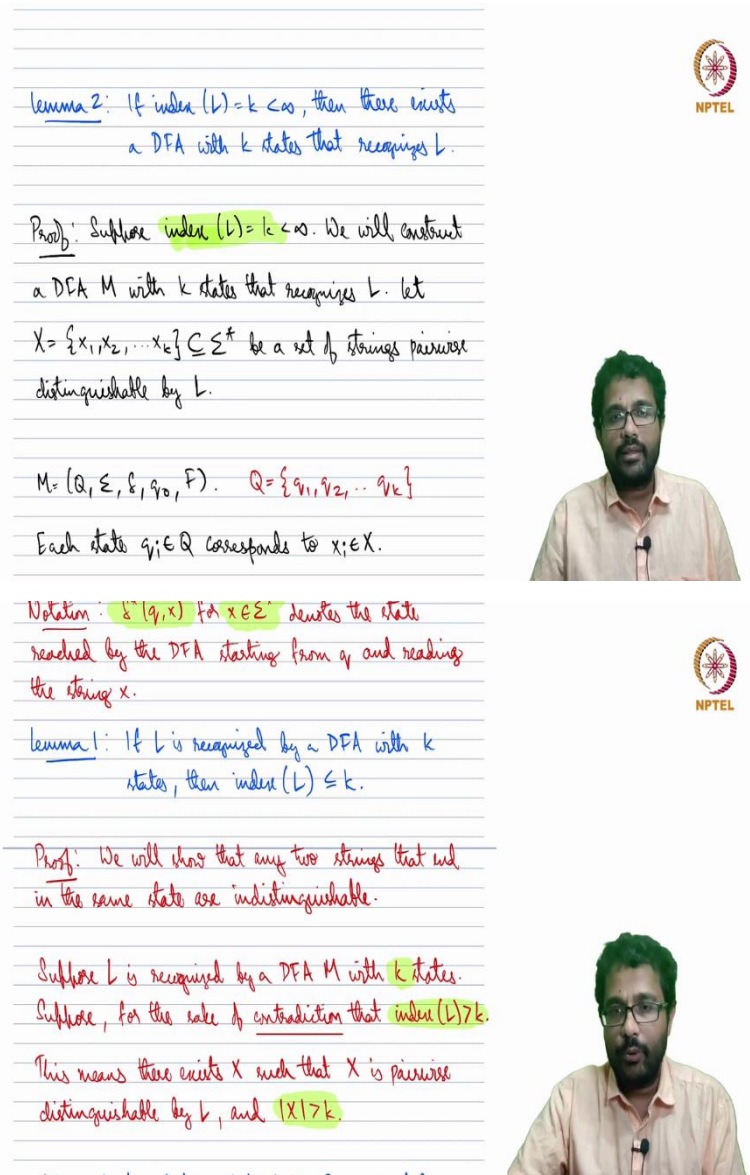 NPTEL
Lemma 2: If index (L) = k < ∞, then there exists
a DFA with k states that recognizes L.
Proof: Suppose index (L) = k < ∞. We will construct
a DFA M with k states that recognizes L. Let
X = {x₁, x₂, ... xₖ} ⊆ Σ* be a set of strings pairwise
distinguishable by L.
M = (Q, Σ, δ, q₀, F). Q = {q₁, q₂, .. qₖ}
Each state qᵢ ∈ Q corresponds to xᵢ ∈ X.
Notation: δ*(q, x) for x ∈ Σ* denotes the state
reached by the DFA starting from q and reading
the string x.
NPTEL
Lemma 1: If L is recognized by a DFA with k
states, then index (L) ≤ k.
Proof: We will show that any two strings that end
in the same state are indistinguishable.
Suppose L is recognized by a DFA M with k states.
Suppose, for the sake of contradiction that index (L) > k.
This means there exists X such that X is pairwise
distinguishable by L, and |X| > k.